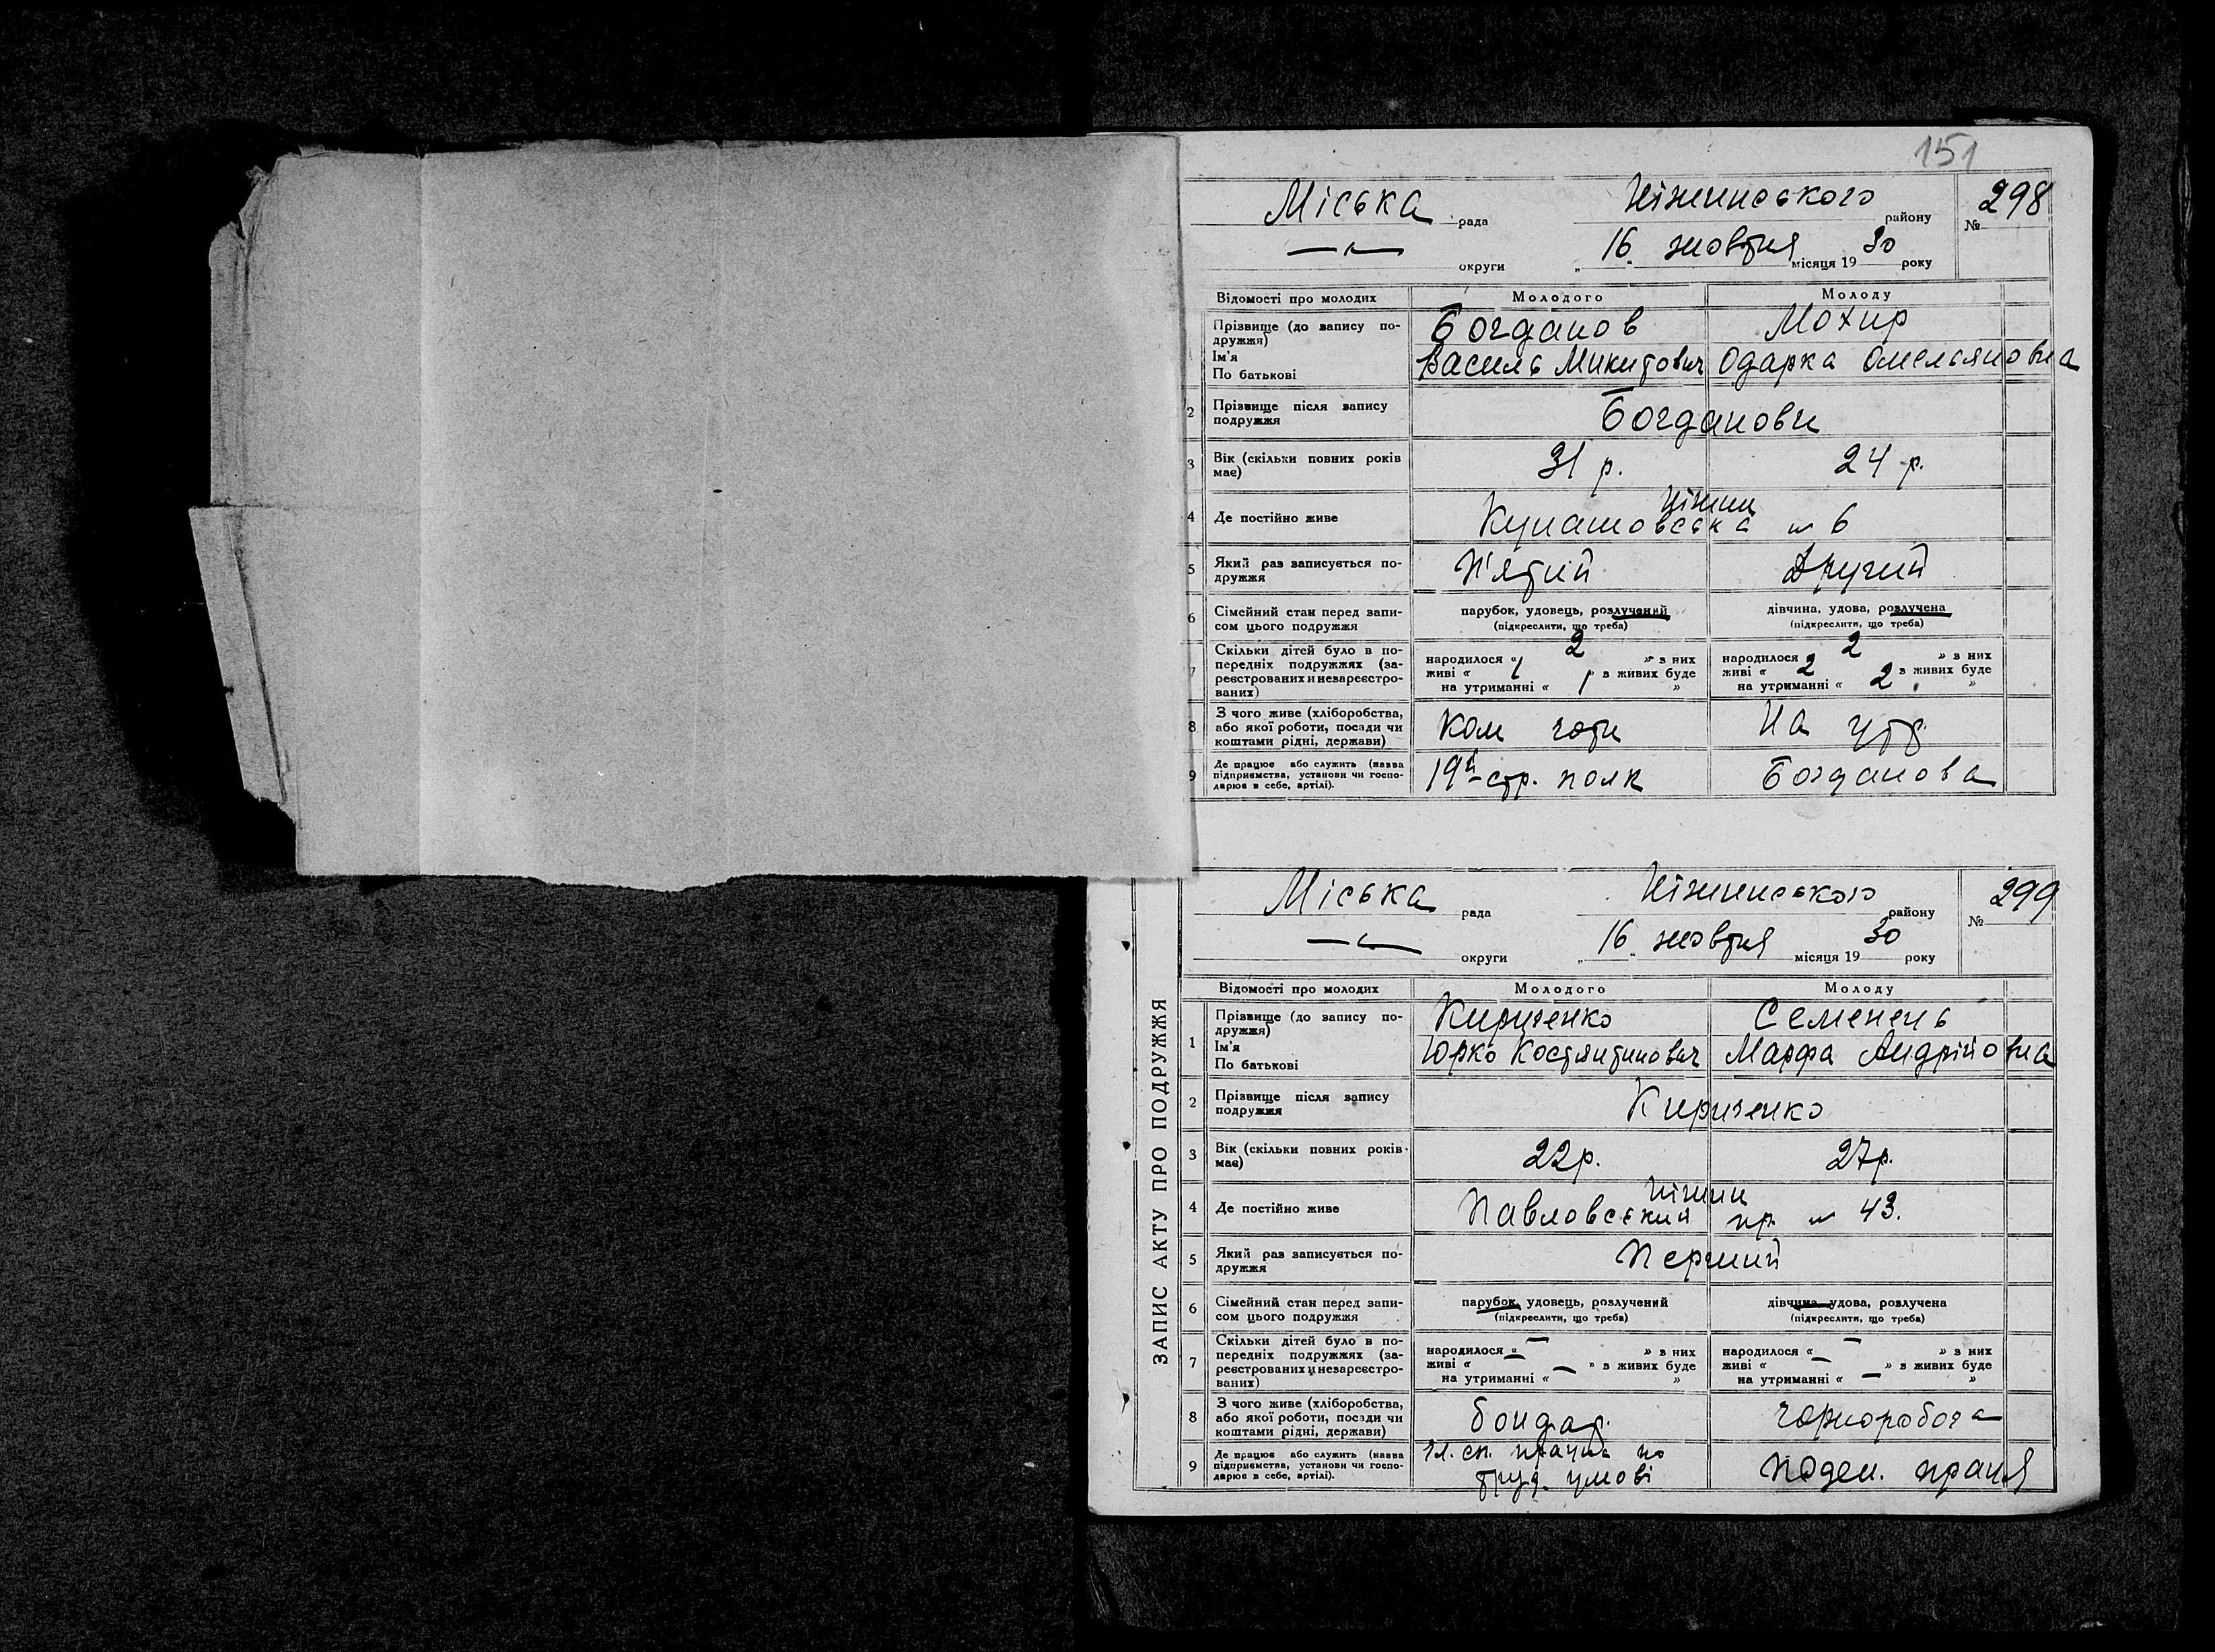 151
Міська рада Ніжинського району № 298
округи „16" жовтня місяця 1930 року
Відомості про молодих Молодого Молоду
Прізвище (до запису подружжя) Богданов Мохир
Ім'я По батькові Василь Микитович Одарка Омельяновна
2 Прізвище після запису подружжя Богданови
3 Вік (скільки повних років має) 31 р. 24 р.
Ніжин
4 Де постійно живе Кунашовська № 6
5 Який раз записується подружжя П'ятий Другий
6 Сімейний стан перед записом цього подружжя парубок, удовець, розлучений дівчина, удова, розлучена
(підкреслити, що треба) (підкреслити, що треба)
7 Скільки дітей було в попередніх подружжях (зареєстрованих и незареєстрованих)
народилося « 2 » з них народилося 2 » з них
живі « 1 » з живих буде живі « 2 » з живих буде
на утриманні « 1 » на утриманні « 2 »
8 З чого живе (хліборобства, або якої роботи, посади чи коштами рідні, держави) Ком роти На утр.
9 Де працює або служить (назва підприємства, установи чи господарює в себе, артілі). 19й стр. полк Богданова
ЗАПИС АКТУ ПРО ПОДРУЖЖЯ
Міська рада Ніжинського району № 299
округи „16" жовтня місяця 1930 року
Відомості про молодих Молодого Молоду
1 Прізвище (до запису подружжя) Кириченко Семенець
Ім'я По батькові Юрко Костянтинович Марфа Андрійовна
2 Прізвище після запису подружжя Кириченко
3 Вік (скільки повних років має) 22р. 27р.
Ніжин
4 Де постійно живе Павловський пр. № 43.
5 Який раз записується подружжя Перший
6 Сімейний стан перед записом цього подружжя парубок, удовець, розлучений дівчина, удова, розлучена
(підкреслити, що треба) (підкреслити, що треба)
7 Скільки дітей було в попередніх подружжях (зареєстрованих и незареєстрованих)
народилося « — » з них народилося « — » з них
живі « — » з живих буде живі « — » з живих буде
на утриманні « — » на утриманні « — »
8 З чого живе (хліборобства, або якої роботи, посади чи коштами рідні, держави) бондар. чорноробоча
9 Де працює або служить (назва підприємства, установи чи господарює в себе, артілі). по труд. умові поден. праця